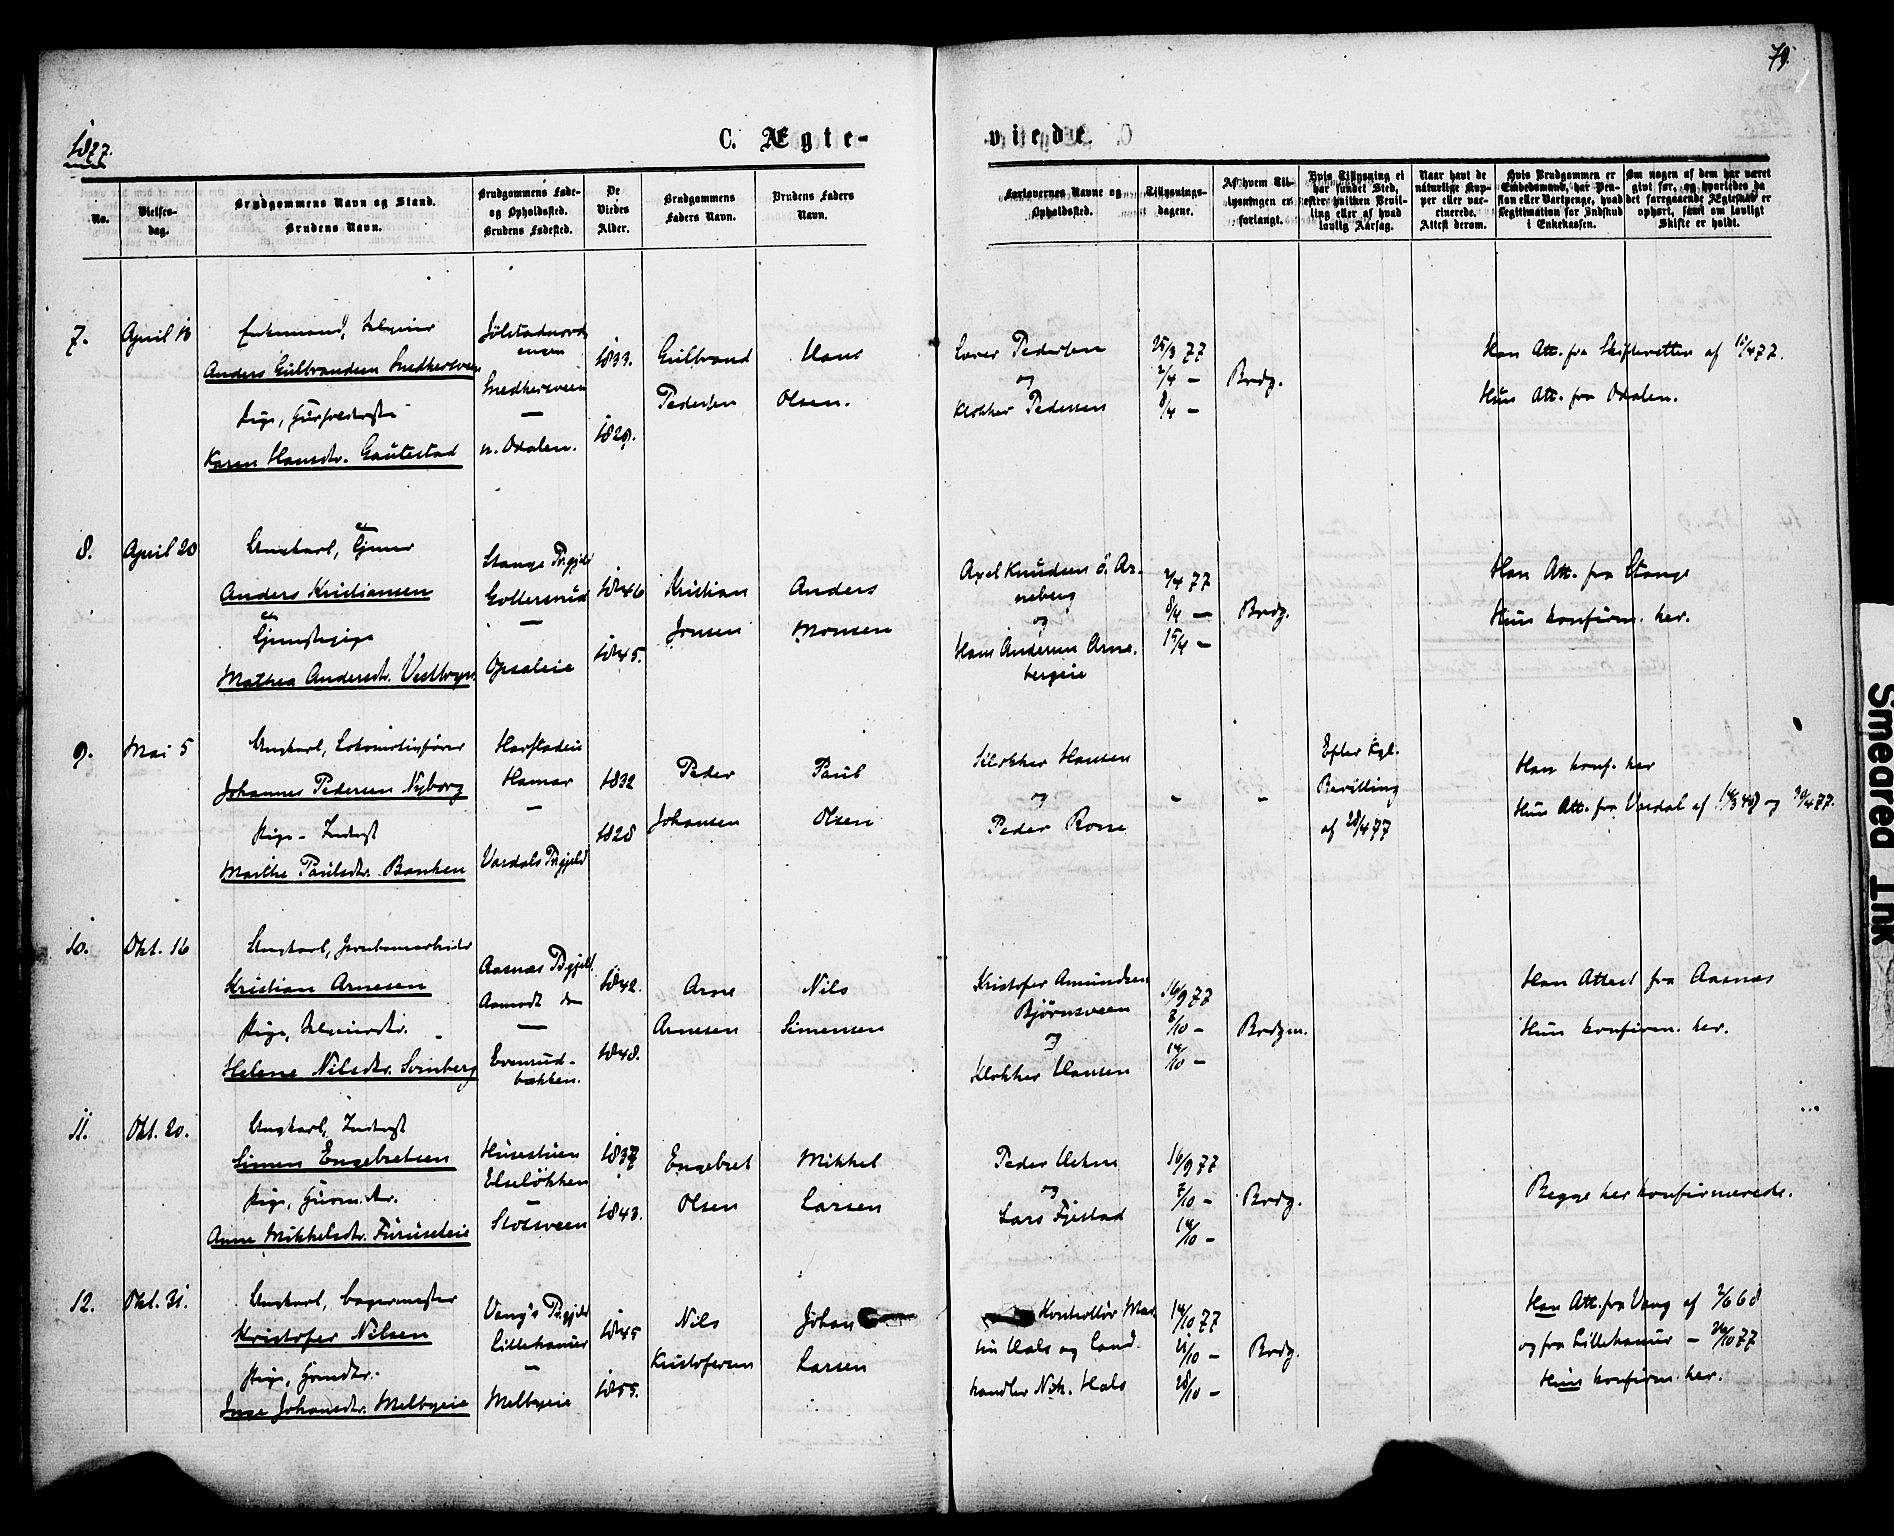 79.
1877.
C. Ægte-
viede.
No.
Vielses-
dag.
Brudgommens Navn og Stand.
Brudens Navn.
Brudgommens Føde-
og Opholdssted.
Brudens Fødested.
De
Viedes
Alder.
Brudgommens
Faders Navn.
Brudens Faders
Navn.
Forlovernes Navne og
Opholdssted.
Tillysnings-
dagene.
Af hvem Til-
lysningen er
forlangt.
Hvis Tillysning ei
har fundet Sted,
efter hvilken Bevil-
ling eller af hvad
lovlig Aarsag.
Naar havt de
naturlige Kop-
per eller vac-
cinerede.
Attest derom.
Hvis Brudgommen er
Embedsmand, har Pen-
sion eller Vartpenge, hvad
Legitimation for Indskud
i Enkekassen.
Om nogen af dem har været
gift før, og hvorledes da
det foregaaende Ægteskab er
ophørt, samt om lovligt
Skifte er holdt.
7.
April 18
Enkemand,
Anders Gulbrandsen Snedkersveen
Pige,
Karen Hansdtr. Gautestad
Snedkersveen
n. Odalen.
1833.
1829.
Gulbrand
Pedersen
Hans
Olsen.
Lærer Pedersen
og
Klokker Pedersen
25/3 77
2/4 —
8/4 —
Brdg.
Han Att. fra Skifteretten af 11/4 77.
Hun Att. fra Odalen.
8.
April 20
Ungkarl,
Anders Kristiansen
Mathea Andersdtr. Vestbyn.
Stange Prgjeld
Gottersrud
—
Opsaleie
1846
1845.
Kristian
Jonsen
Anders
Monsen
Axel Knudsen ö. Ar-
neberg
og
Hans Andersen Arne-
bergeie
2/4 77
8/4 —
15/4 —
Brdg.
Han Att. fra Stange
Hun konfirm. her.
9.
Mai 5
Ungkarl, Lokomotivfører
Johannes Pedersen Nyborg
Pige - Inderst
Marthe Paulsdtr. Banken
Harstadeie
Hamar
—
Vardals Prgjeld
1832
1828
Peder
Johansen
Paul
Olsen
Klokker Hansen
og
Peder Rone
-
-
Efter Kgl.
Bevilling
af 28/4 77
Han konf. her
Hun Att. fra Vardal af 14/3 48 og 30/4 77.
10.
Okt. 16
Ungkarl, Jernbanearbeider
Kristian Arnesen
Pige,
Helene Nilsdtr. Svenberg
Aasnæs Prgjeld.
Aamodt do
—
Evenrud-
bækken.
1842.
1848.
Arne
Arnesen
Nils
Simensen
Kristofer Amundsen
Bjørnsveen
og
Klokker Hansen
16/9 77
7/10 —
14/10 —
Brdgm.
Han Attest fra Aasnæs
Hun konfirm. her.
11.
Okt. 20.
Ungkarl, Inderst
Simen Engebretsen
Pige,
Anne Mikkelsdtr. Furuseteie
Husestuen
Elseløkken
—
Storsveen
1837
1843.
Engebret
Olsen
Mikkel
Larsen
Peder Uthne
og
Lars Fjestad
16/9 77
7/10 —
14/10 —
Brdg.
Begge her konfirmerede.
12.
Okt. 31.
Ungkarl, Lagermester
Kristofer Nilsen
Pige,
Inge Johansdtr. Melbyeie
Vang's Prgjeld
Lillehamer
—
Melbyeie
1845
1855.
Nils
Kristofersen
Johan
Larsen
Kontrollør Mar-
tin Hals og Land-
handler Nik. Hals
14/10 77
21/10 —
28/10 —
Brdg.
Han Att. fra Vang af 2/6 68
og fra Lillehamer — 26/10 77
Hun konfirm. her.
Smeared Ink